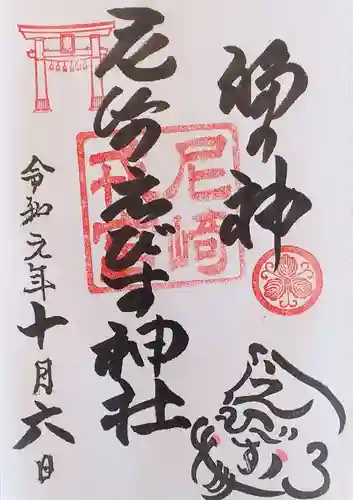 勝の神
尼崎えびす神社
令和元年十月六日
尼崎
えびす